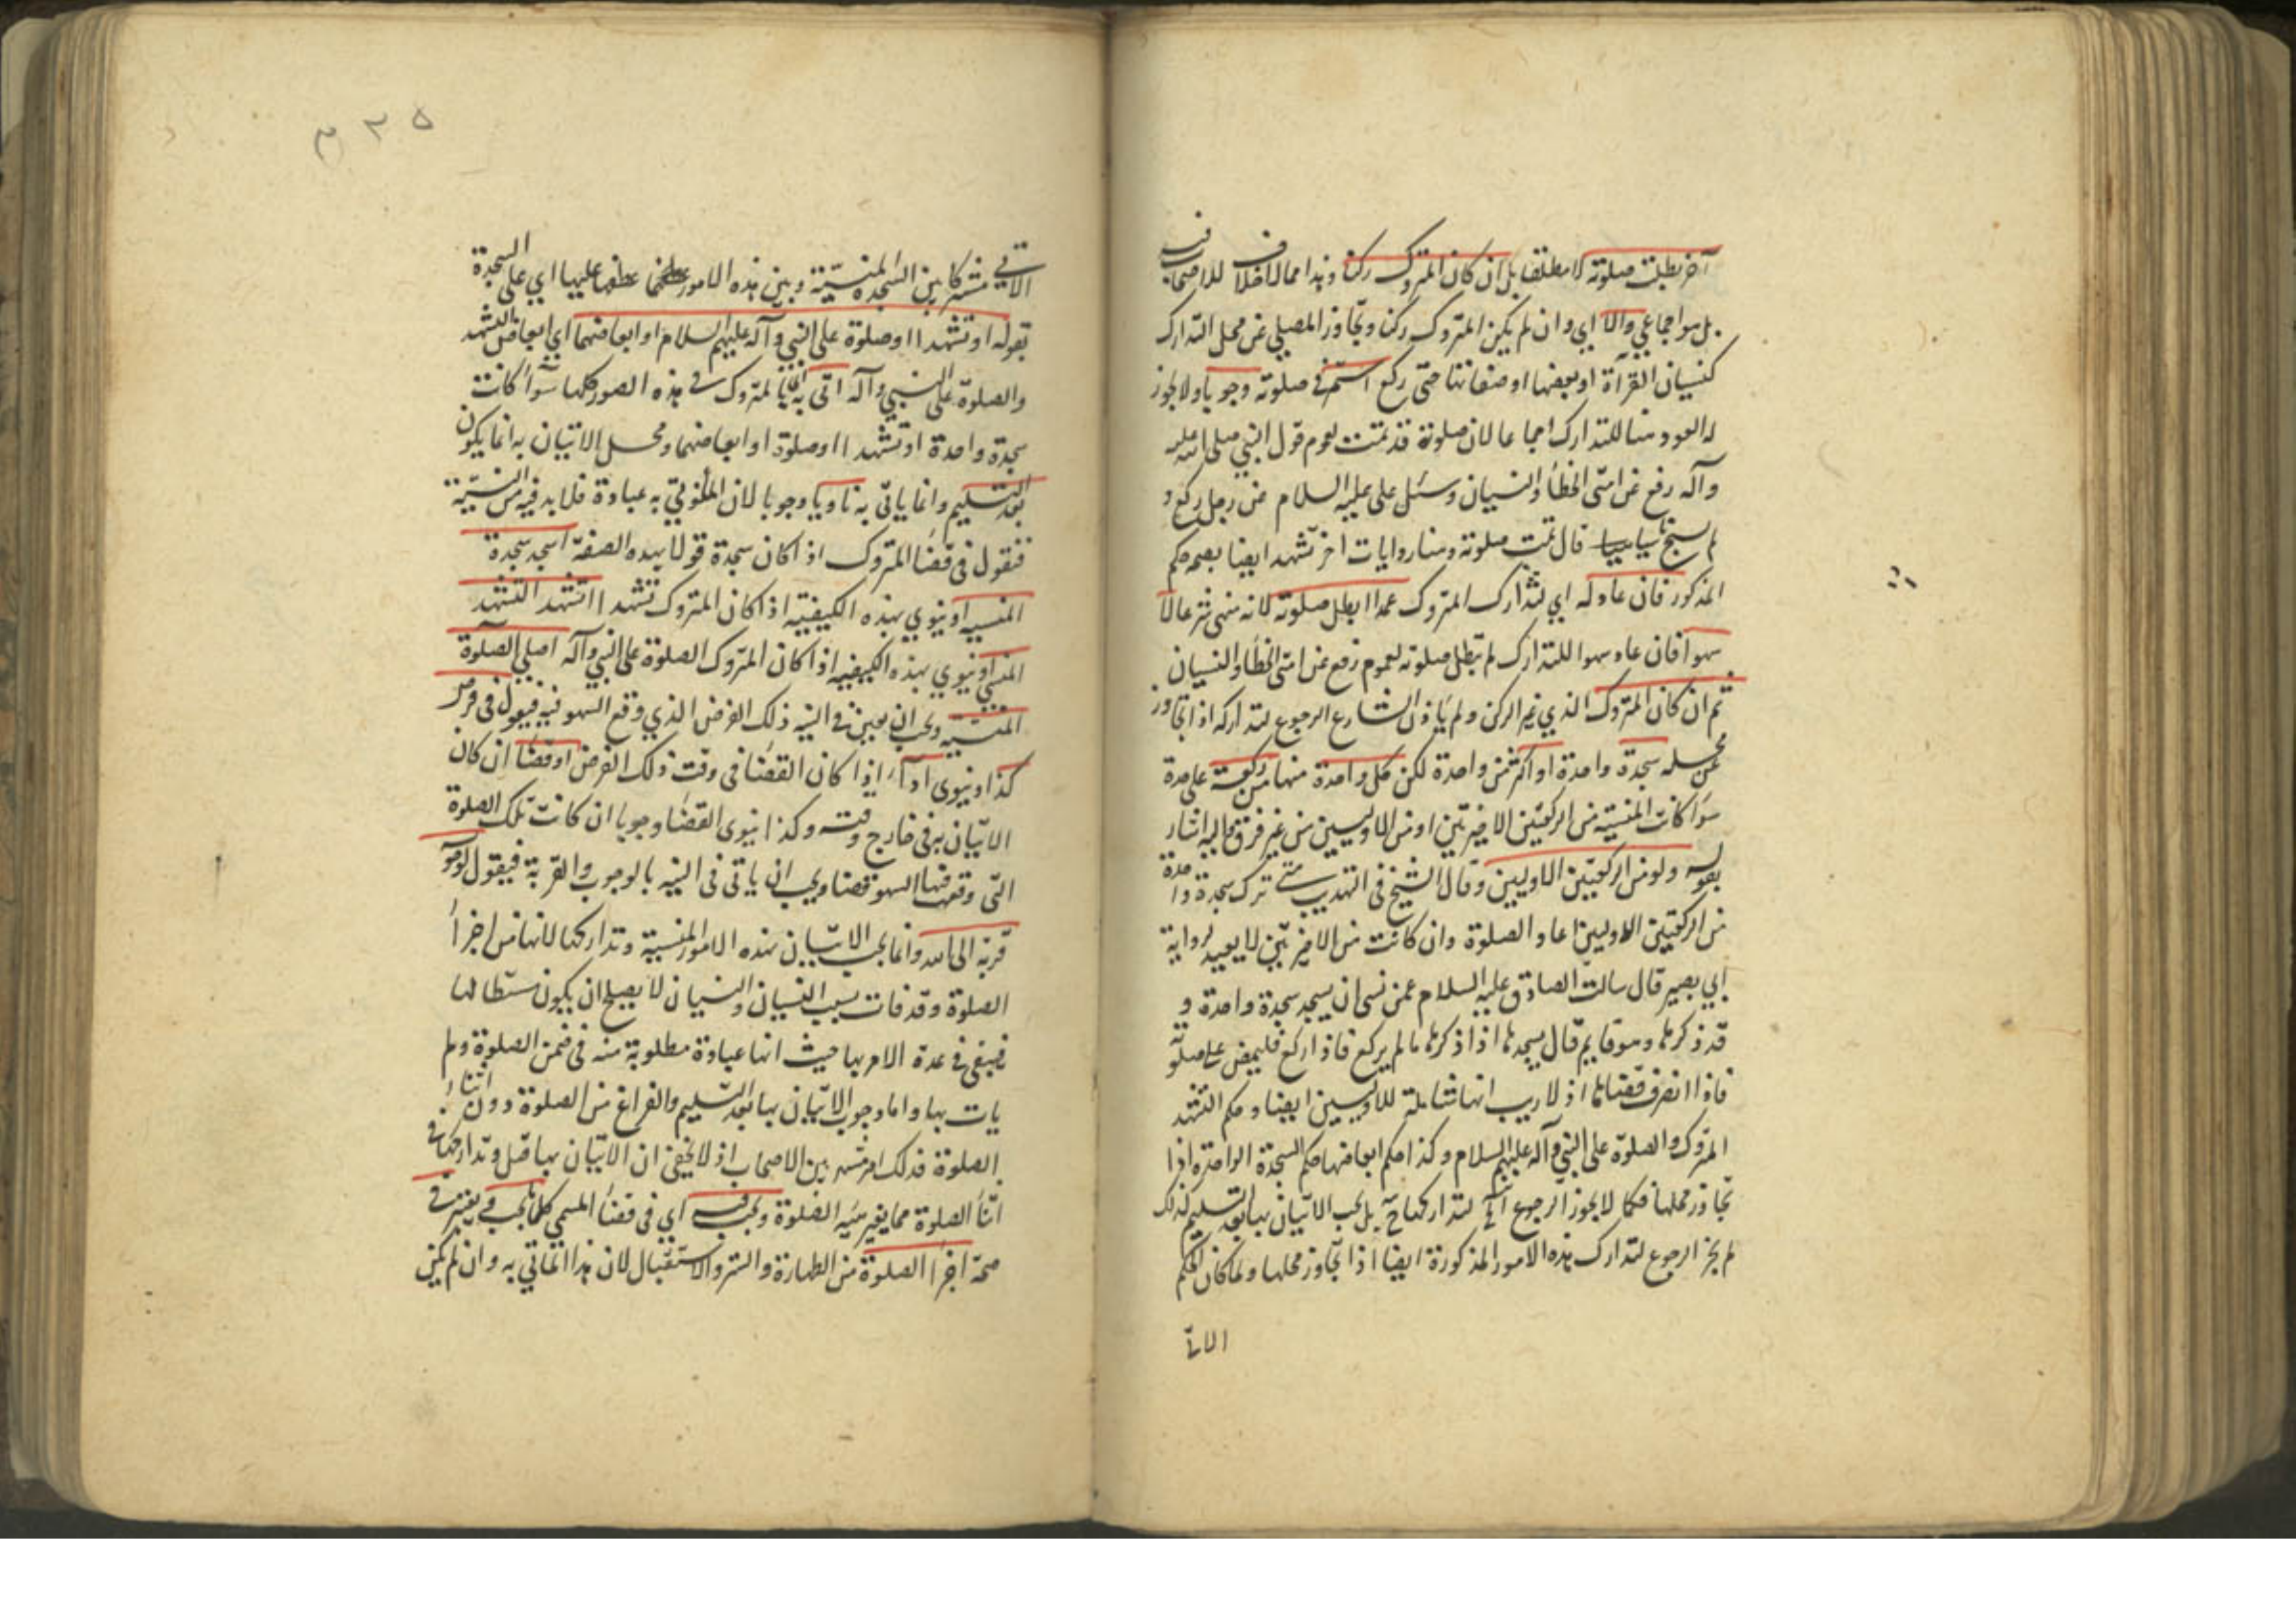 آخر بطلت صلوته لا مطلقا بل ان كان المتروك ركنا وهذا مما لا خلاف للاصحاب فيه
بل هو اجماعي والا اي وان لم يكن المتروك ركنا وتجاوز المصلي عن محل التدارك
كنسيان القرآة او بعضها او صفاتها حتى ركع استمر في صلوته وجوبا ولا يجوز
له العود هنا للتدارك اجماعا لان صلوته قد تمت لعموم قول النبي صلى الله عليه
وآله رفع عن امتي الخطأ والنسيان وسئل علي عليه السلام عن رجل ركع و
لم يسبح ناسيا قال تمت صلوته وهنا روايات اخر تشهد ايضا بصحة حكم
المذكور فان عاد له اي لتدارك المتروك عمدا بطل صلوته لانه منهي شرعا لا
سهوا فان عاد سهوا للتدارك لم تبطل صلوته لعموم رفع عن امتي الخطأ والنسيان
ثم ان كان المتروك الذي غير الركن ولم ياذن الشارع الرجوع لتداركه اذا تجاوز
عن محله سجدة واحدة او اكثر من واحدة لكن كل واحدة منها من ركعة على حدة
سوآ كانت المنسية من الركعتين الاخيرتين او من الاوليين من غير فرق واليه اشار
بقوله ولو من الركعتين الاوليين وقال الشيخ في التهذيب متى ترك سجدة واحدة
من الركعتين الاوليين اعاد الصلوة وان كانت من الاخيرتين لا يعيد لرواية
ابي بصير قال سالت الصادق عليه السلام عمن نسي ان يسجد سجدة واحدة و
قد ذكرها وهو قايم قال يسجدها اذا ذكرها ما لم يركع فاذا ركع فليمض على صلوته
فاذا انصرف قضاها اذ لا ريب انها شاملة للاوليين ايضا وحكم التشهد
المتروك والصلوة على النبي وآله عليهم السلام وكذا حكم ابعاضها حكم السجدة الواحدة اذا
تجاوز محلها فكما لا يجوز الرجوع لتداركها ح بل يجب الاتيان بها بعد التسليم كذلك
لم يجز الرجوع لتدارك هذه الامور المذكورة ايضا اذا تجاوز محلها ولما كان الحكم
الاتي
٣٢٥
الاتي مشتركا بين السجدة المنسية وبين هذه الامور عطفها عليها اي على السجدة
بقوله او تشهدا او صلوة على النبي وآله عليهم السلام او ابعاضهما اي ابعاض التشهد
والصلوة على النبي وآله اتى بالمتروك في هذه الصور كلها سوآ كانت
سجدة واحدة او تشهدا او صلوة او ابعاضهما ومحل الاتيان به انما يكون
بعد التسليم وانما ياتى به ناويا وجوبا لان الماتي به عبادة فلا بد فيه من النية
فنقول في قضآ المتروك اذا كان سجدة قولا بهذه الصفة اسجد سجدة
المنسية او ينوي بهذه الكيفية اذا كان المتروك تشهدا اتشهد التشهد
المنسي او ينوي بهذه الكيفية اذا كان المتروك الصلوة على النبي وآله اصلي الصلوة
المنسية ويجب ان يعين في النية ذلك الفرض الذي وقع السهو فيه فيقول في فرض
كذا وينوى ادآء اذا كان القضآ في وقت ذلك الفرض او قضآ ان كان
الاتيان به في خارج وقته وكذا ينوى القضآ وجوبا ان كانت تلك الصلوة
التى وقع فيها السهو قضا ويجب ان ياتى في النية بالوجوب والقربة فيقول لوجوبه
قربة الى الله وانما يجب الاتيان بهذه الامور المنسية وتداركها لانها من اجزآ
الصلوة وقد فات بسبب النسيان والنسيان لا يصلح ان يكون مسقطا لها
فيبقى في عهدة الامر بها حيث انها عبادة مطلوبة منه في ضمن الصلوة ولم
يات بها واما وجوب الاتيان بها بعد التسليم والفراغ من الصلوة دون اثنآء
الصلوة فذلك امر مشهور بين الاصحاب اذ لا يخفى ان الاتيان بها قبل وتداركها في
اثنآ الصلوة مما يغير هيئة الصلوة ويجب فيه اي في قضآ المنسي كلما يجب في
صحة اجزآ الصلوة من الطهارة والستر والاستقبال لان هذا الماتي به وان لم يكن